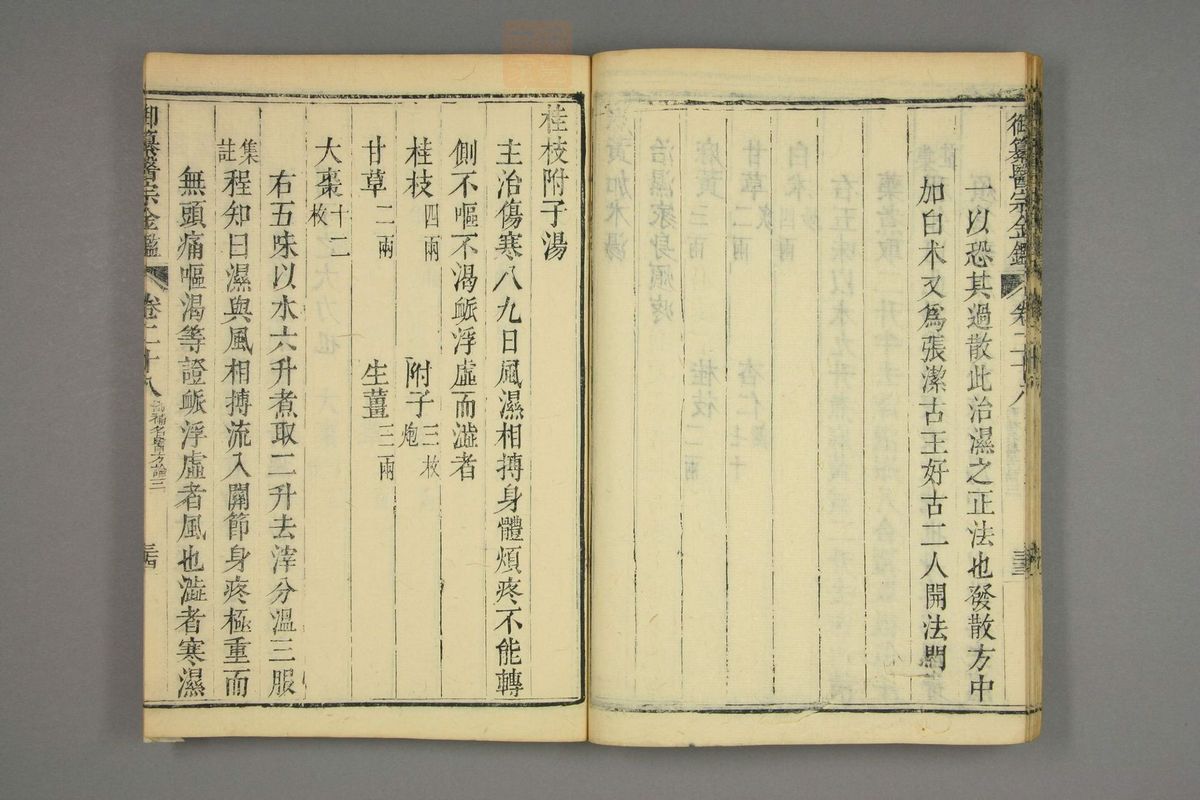 御纂醫宗金鑑 卷二十八 三十三
以恐其過散此治濕之正法也發散方中
加白术又為張潔古王好古二人開法門
桂枝附子湯
主治傷寒八九日風濕相搏身體煩疼不能轉
側不嘔不渴脈浮虛而澁者
桂枝四兩 附子三枚炮
甘草二兩 生薑三兩
大棗十二枚
右五味以水六升煮取二升去滓分溫三服
集註程知曰濕與風相搏流入關節身疼極重而
無頭痛嘔渴等證脈浮虛者風也澁者寒濕
御纂醫宗金鑑 卷二十八 刪補名醫方論三 三十四